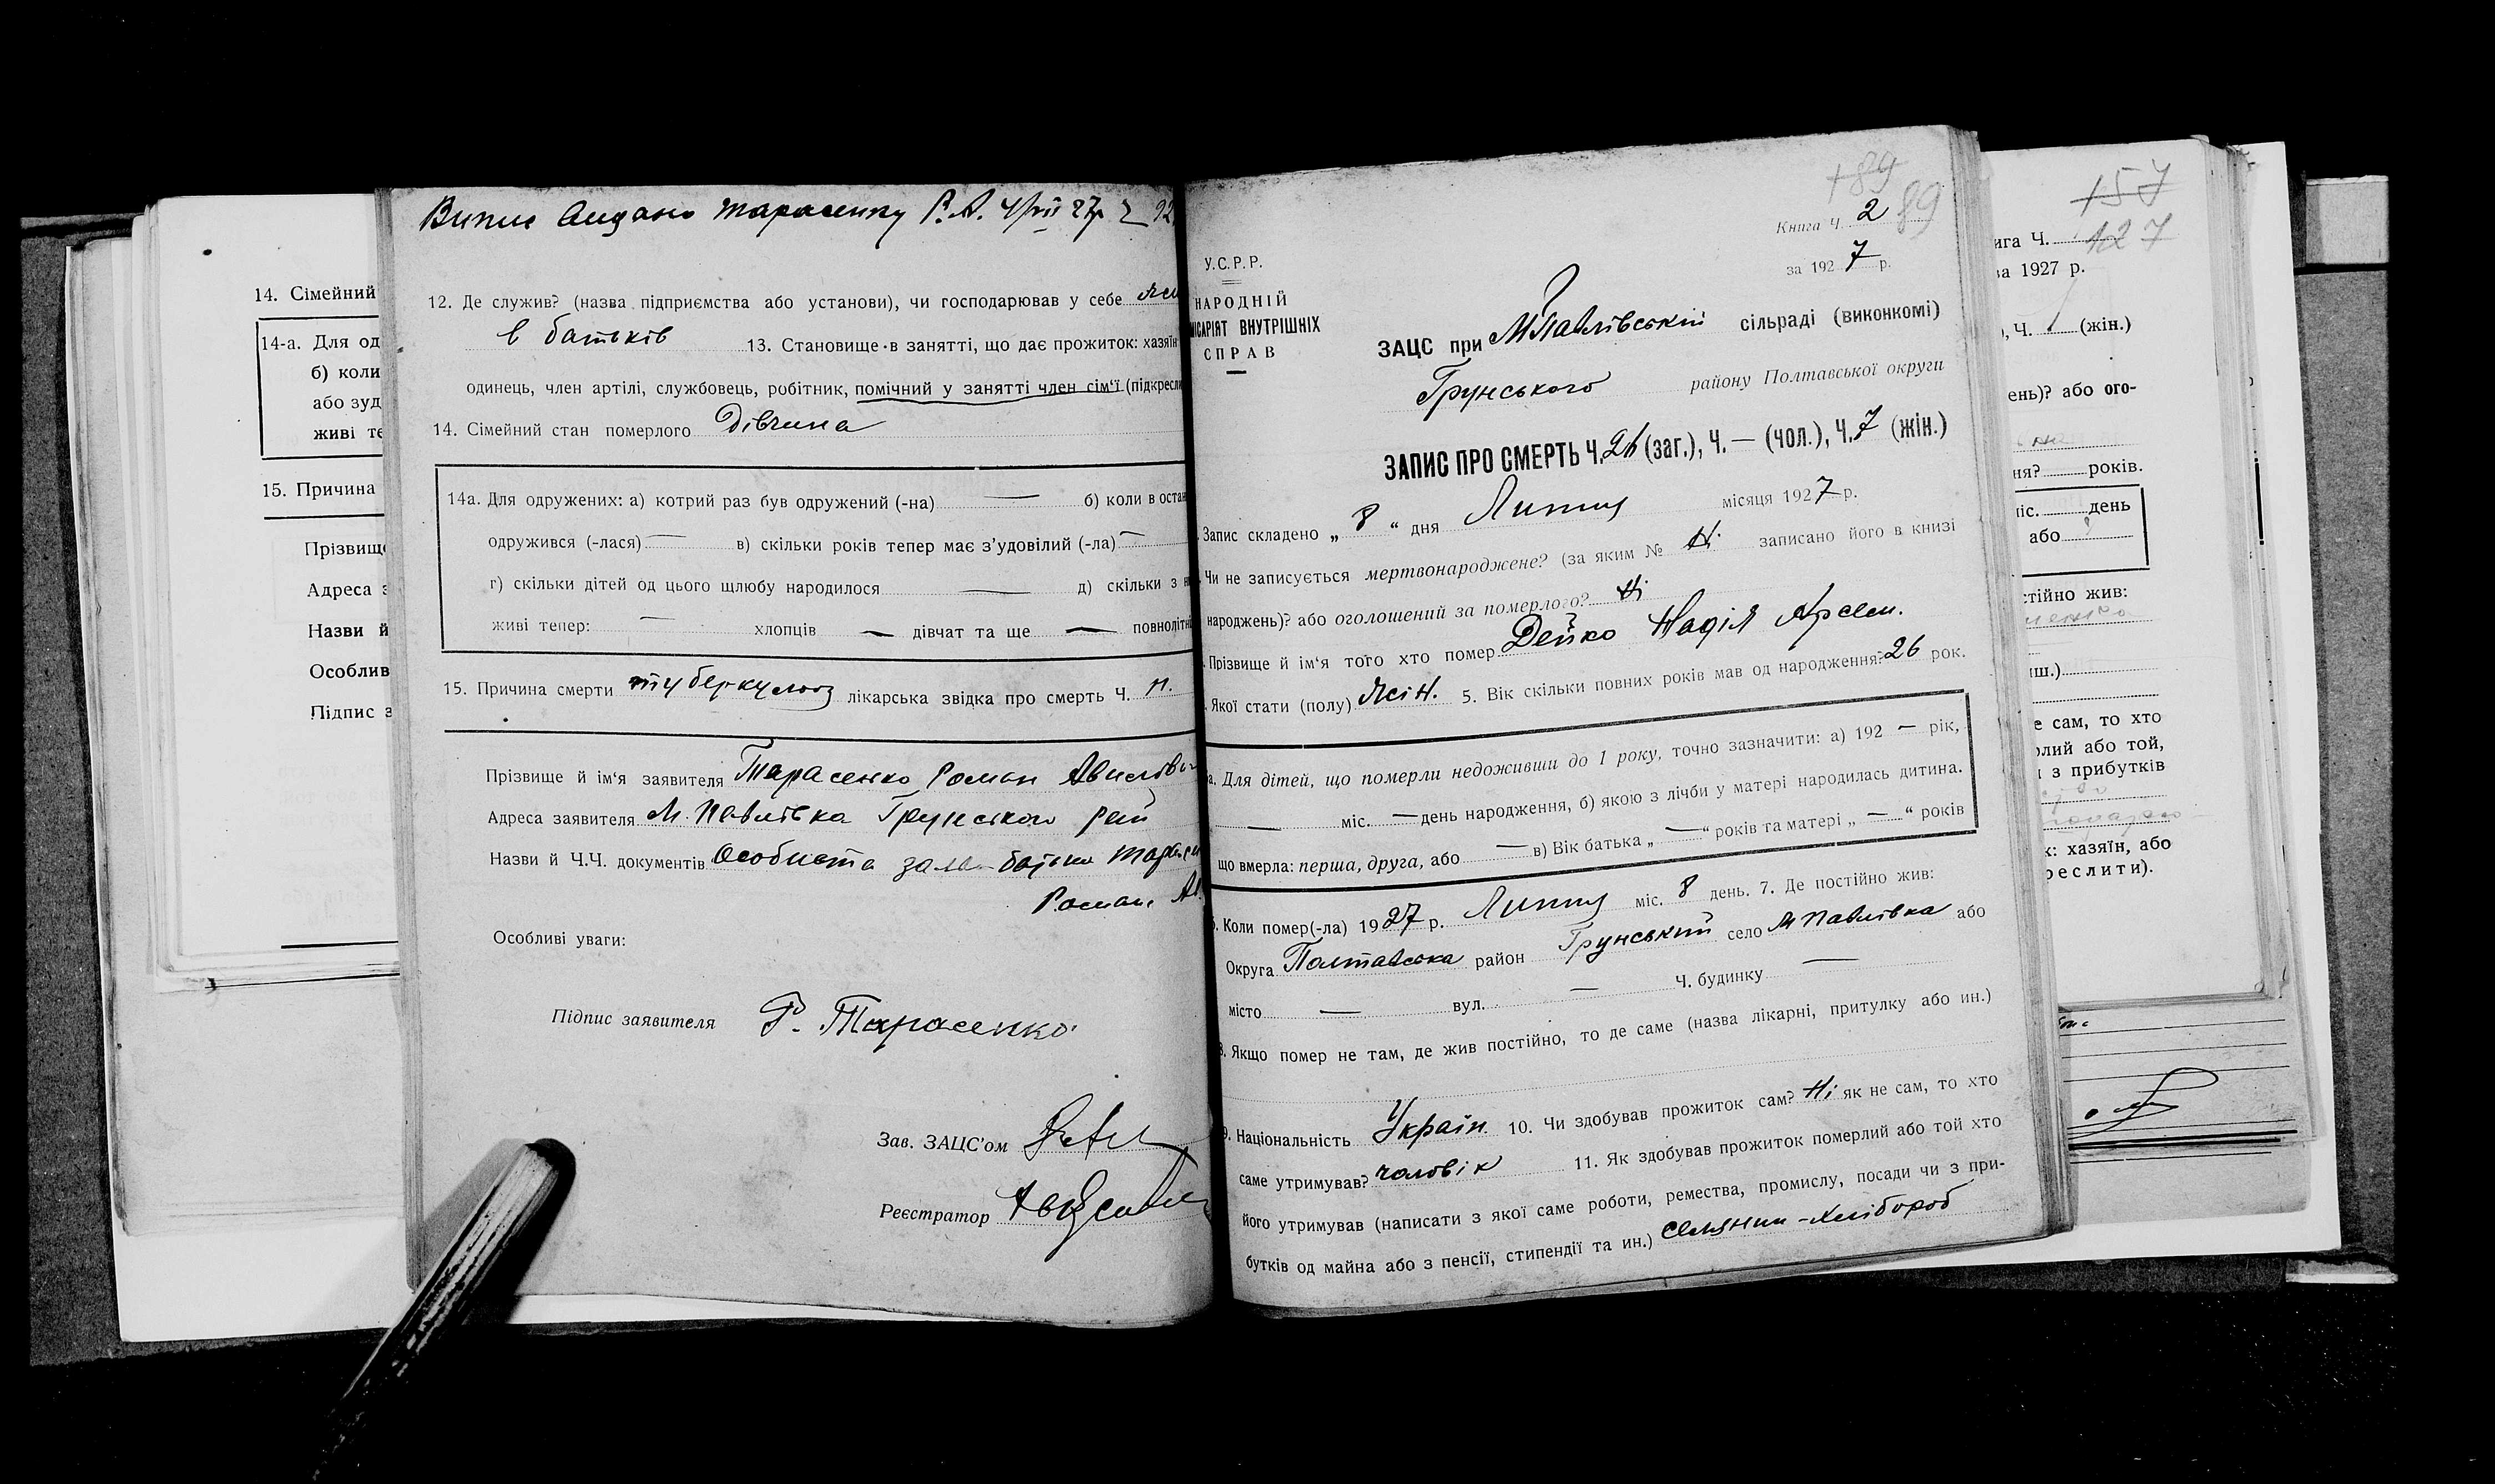 14. Сімейний
14-а. Для од
б) коли
або зуд
живі те
15. Причина
Прізвище
Адреса з
Назви й
Особлив
Підпис з
Випис видано Тарасенку Р. А. 4/VII 27р
12. Де служив? (назва підприємства або установи), чи господарював у себе
в батьків 13. Становище в занятті, що дає прожиток: хазяїн
одинець, член артілі, службовець, робітник, помічний у занятті член сім'ї (підкресли
14. Сімейний стан померлого Дівчина
14а. Для одружених: а) котрий раз був одружений (-на) — б) коли в остан
одружився (-лася) — в) скільки років тепер має з'удовілий (-ла) —
г) скільки дітей од цього щлюбу народилося — д) скільки з н
живі тепер: — хлопців — дівчат та ще — повнолітн
15. Причина смерти туберкульоз лікарська звідка про смерть Ч. н.
Прізвище й ім'я заявителя Тарасенко Роман
Адреса заявителя М. Павлівка Грунського рай
Назви й Ч.Ч. документів Особиста заява батька Тарасен
Роман. Ав.
Особливі уваги:
Підпис заявителя Р. Тарасенко
Зав. ЗАЦС'ом
Реєстратор
+89
89
Книга Ч. 2
за 1927 р.
У.С.Р.Р.
НАРОДНІЙ
ІСАРІЯТ ВНУТРІШНІХ
СПРАВ
ЗАЦС при МПавлівській сільраді (виконкомі)
Грунського району Полтавської округи
ЗАПИС ПРО СМЕРТЬ Ч. 26 (заг.), Ч. — (чол.), Ч. 7 (жін.)
Запис складено „ 8 “ дня Липня місяця 1927 р.
Чи не записується мертвонароджене? (за яким № Ні записано його в книзі
народжень)? або оголошений за померлого? Ні
Прізвище й ім'я того хто помер Дейко Надія Арсен.
Якої стати (полу) Жін. 5. Вік скільки повних років мав од народження? 26 рок.
а. Для дітей, що померли недоживши до 1 року, точно зазначити: а) 192 — рік,
— міс. — день народження, б) якою з лічби у матері народилась дитина.
що вмерла: перша, друга, або — в) Вік батька „ — “ років та матері „ — “ років
6. Коли помер(-ла) 1927 р. Липня міс. 8 день. 7. Де постійно жив:
Округа Полтавська район Грунський село М Павлівка або
місто — вул. — Ч. будинку —
8. Якщо помер не там, де жив постійно, то де саме (назва лікарні, притулку або ин.)
9. Національність Україн. 10. Чи здобував прожиток сам? Ні як не сам, то хто
саме утримував? чоловік 11. Як здобував прожиток померлий або той хто
його утримував (написати з якої саме роботи, ремества, промислу, посади чи з при-
бутків од майна або з пенсії, стипендії та ин.) селянин-хлібороб
157
127
ига Ч.
за 1927 р.
), Ч. (жін.)
ень)? або ого-
ня? років.
міс. день
або
стійно жив:
иш.)
е сам, то хто
рлий або той,
и з прибутків
к: хазяїн, або
реслити).